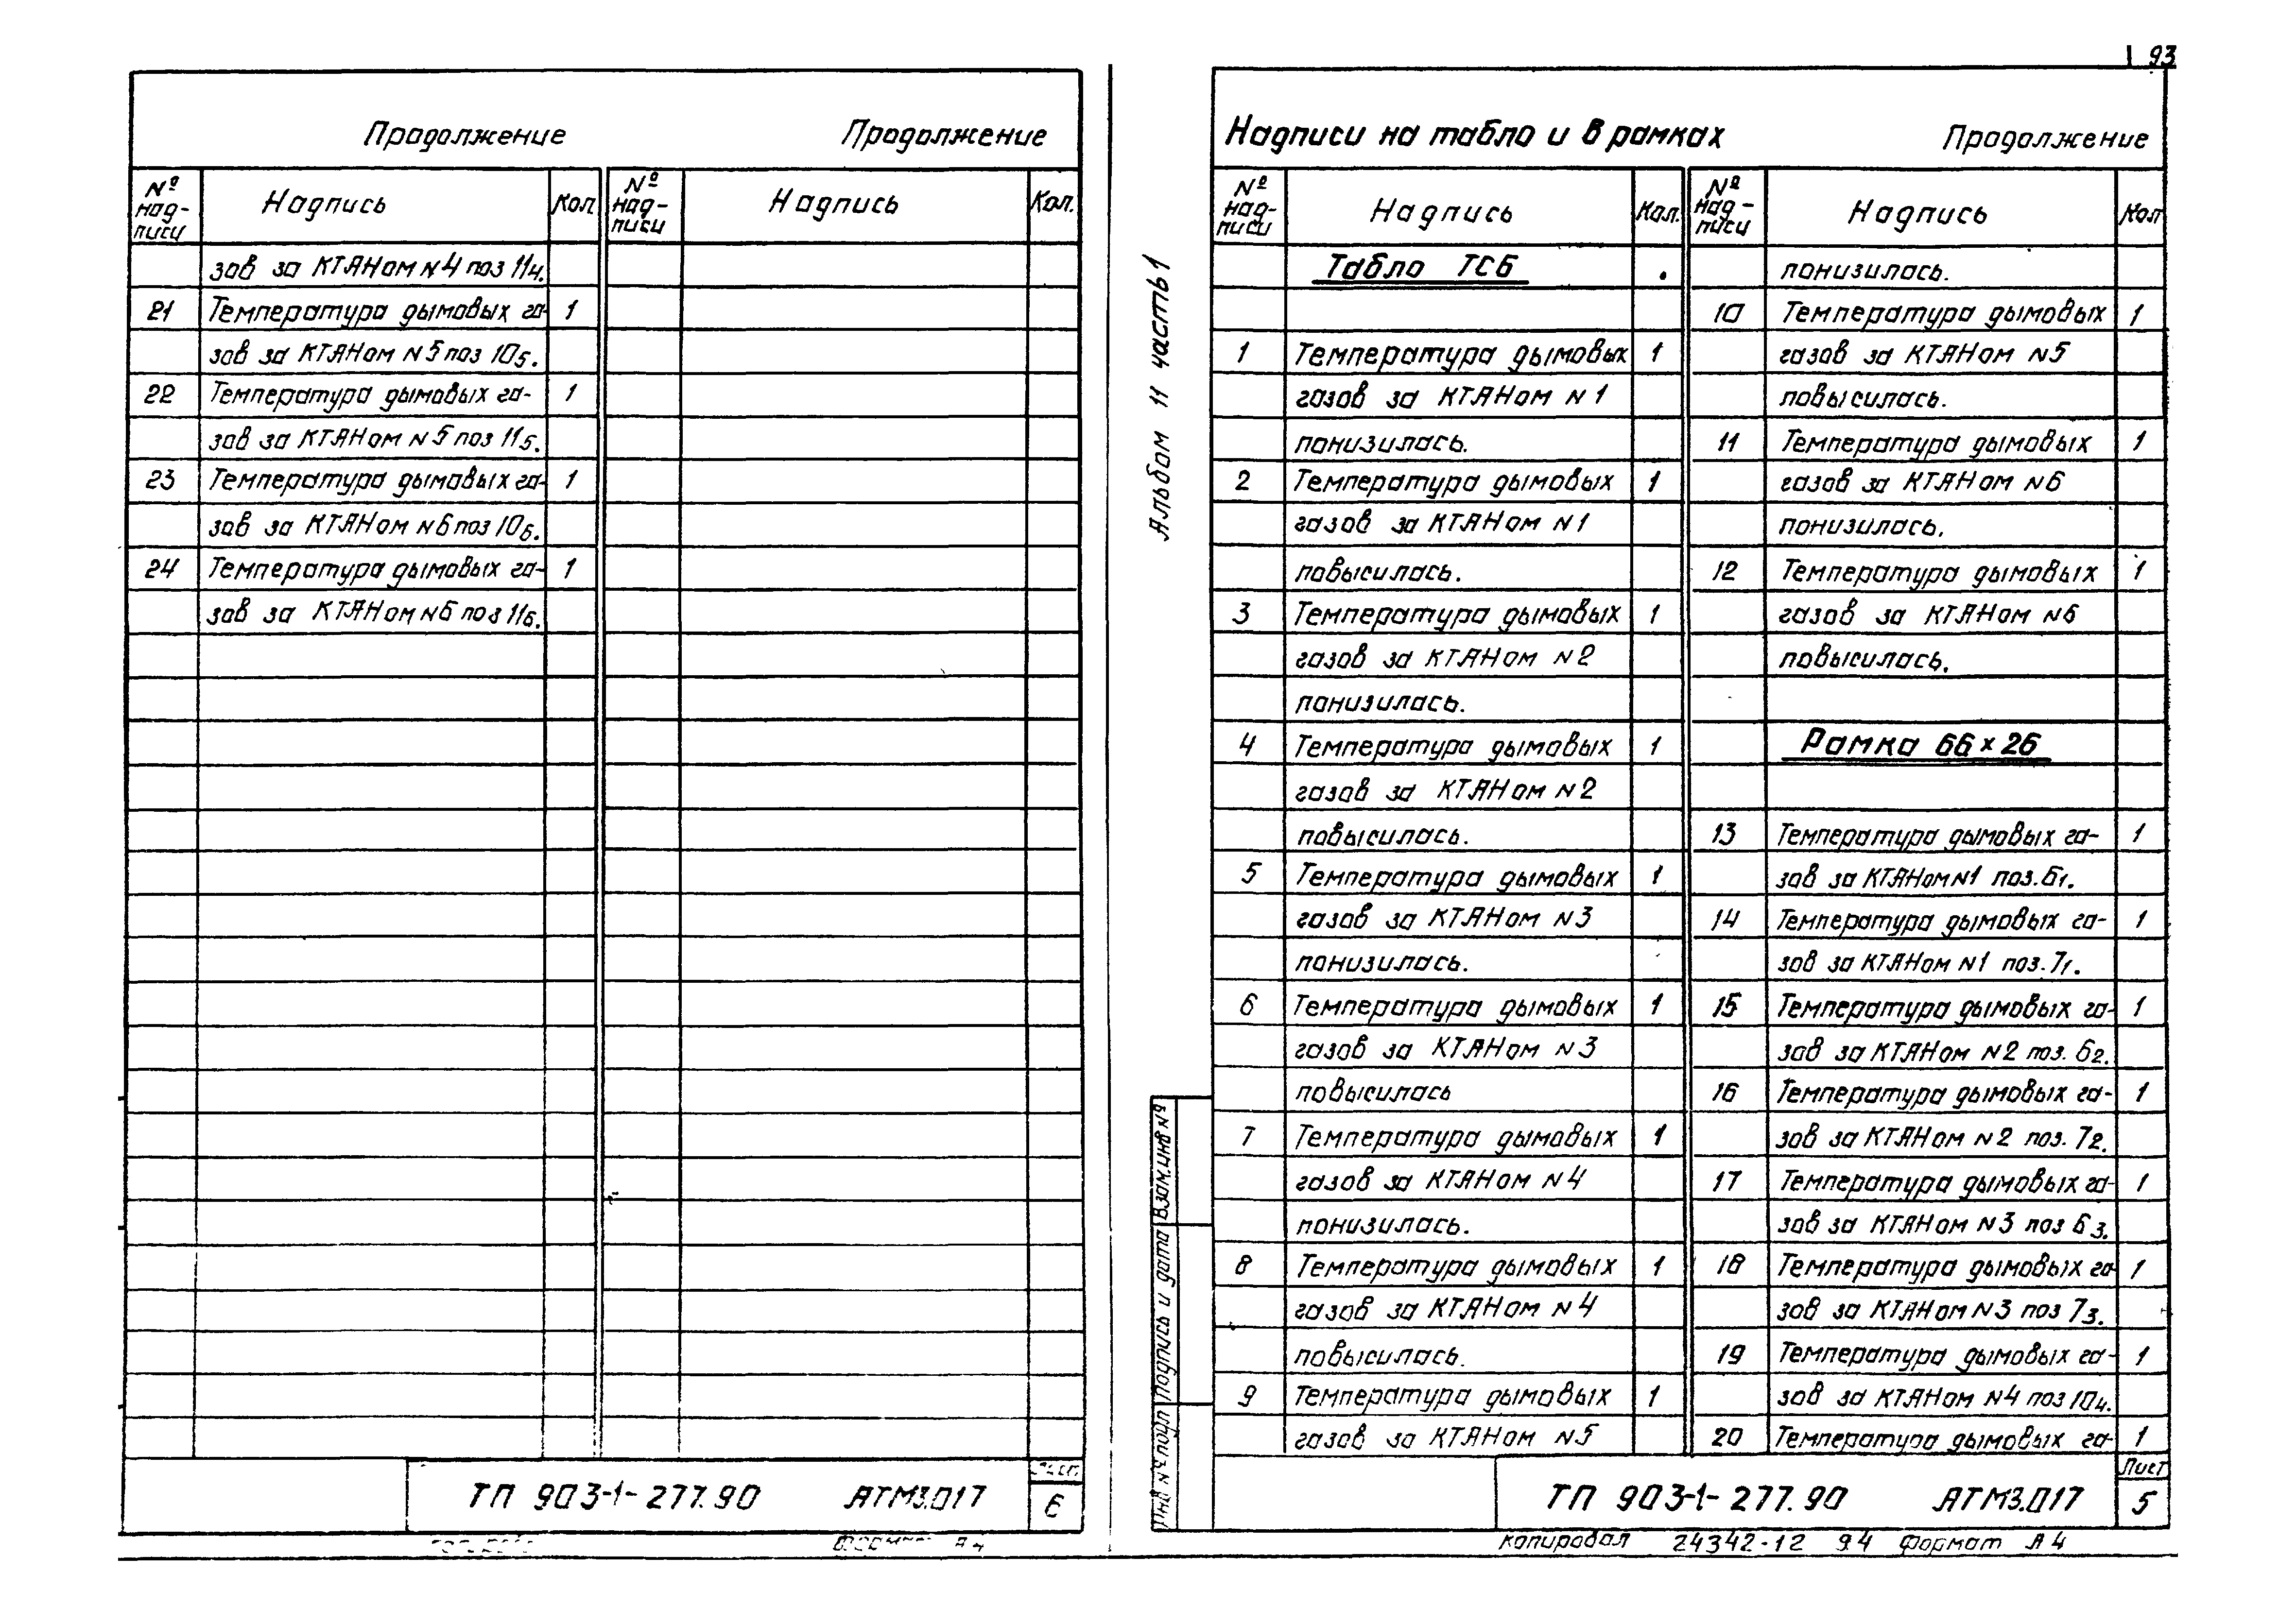 93
Продолжение
Продолжение
№ над-писи
Надпись
Кол
№ над-писи
Надпись
Кол.
зов за КТАНом N4 поз 11₄.
21 Температура дымовых га- 1
зов за КТАНом N5 поз 10₅.
22 Температура дымовых га- 1
зов за КТАНом N5 поз 11₅.
23 Температура дымовых га- 1
зов за КТАНом N6 поз 10₆.
24 Температура дымовых га- 1
зов за КТАНом N6 поз 11₆.
ТП 903-1-277.90 АТМ3.017
6
Формат А4
Альбом 11 часть 1
Надписи на табло и в рамках
Продолжение
№ над-писи
Надпись
Кол.
№ над-писи
Надпись
Кол
Табло ТСБ
1 Температура дымовых 1
газов за КТАНом N1
понизилась.
2 Температура дымовых 1
газов за КТАНом N1
повысилась.
3 Температура дымовых 1
газов за КТАНом N2
понизилась.
4 Температура дымовых 1
газов за КТАНом N2
повысилась.
5 Температура дымовых 1
газов за КТАНом N3
понизилась.
6 Температура дымовых 1
газов за КТАНом N3
повысилась
7 Температура дымовых 1
газов за КТАНом N4
понизилась.
8 Температура дымовых 1
газов за КТАНом N4
повысилась.
9 Температура дымовых 1
газов за КТАНом N5
понизилась.
10 Температура дымовых 1
газов за КТАНом N5
повысилась.
11 Температура дымовых 1
газов за КТАНом N6
понизилась.
12 Температура дымовых 1
газов за КТАНом N6
повысилась.
Рамка 66×26
13 Температура дымовых га- 1
зов за КТАНом N1 поз. 6₁.
14 Температура дымовых га- 1
зов за КТАНом N1 поз. 7₁.
15 Температура дымовых га- 1
зов за КТАНом N2 поз. 6₂.
16 Температура дымовых га- 1
зов за КТАНом N2 поз. 7₂.
17 Температура дымовых га- 1
зов за КТАНом N3 поз 6₃.
18 Температура дымовых га- 1
зов за КТАНом N3 поз 7₃.
19 Температура дымовых га- 1
зов за КТАНом N4 поз 10₄.
20 Температура дымовых га- 1
Инв № подл
Подпись и дата
Взам.инв №
ТП 903-1-277.90 АТМ3.017
Лист
5
Копировал 24342-12 94 Формат А4